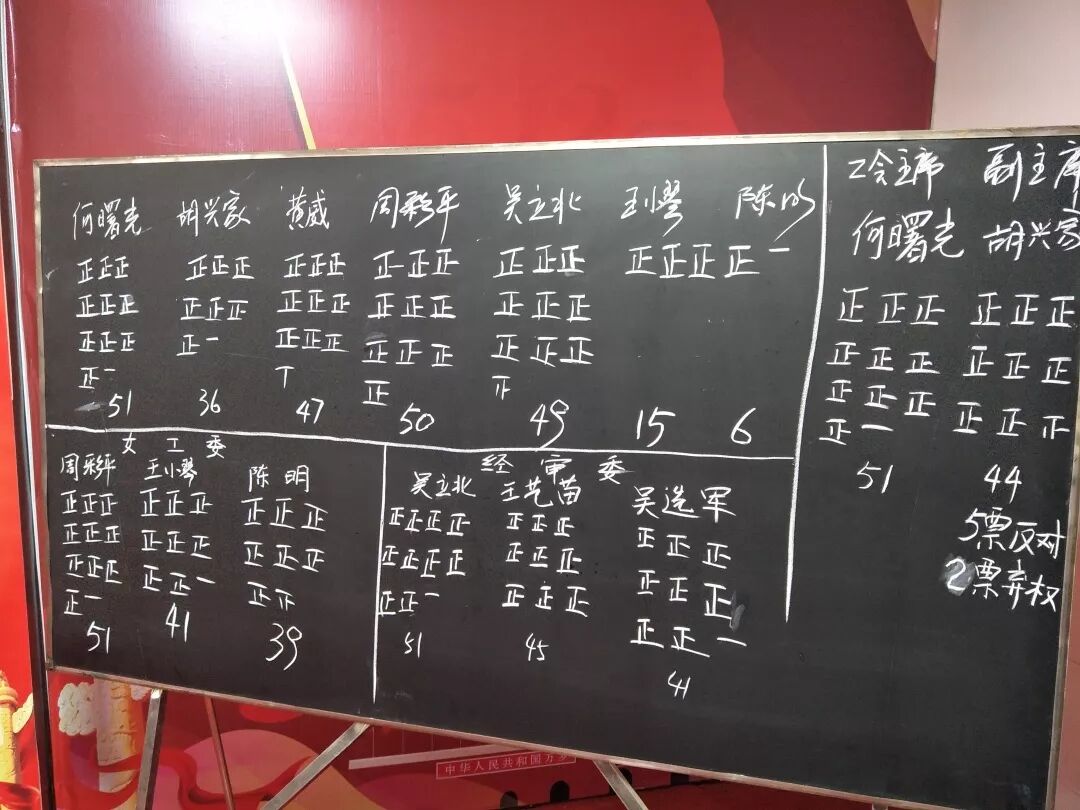 何曙光 胡兴家 黄威 周彩平 吴立北 王小琴 陈明
正正正 正正正 正正正 正正正 正正正 正正正 正一
正正正 正正正 正正正 正正正 正正正
正正正 正一 正正正 正正正 正正正
正一 正
51 36 47 50 49 15 6
女工委
周彩平 王小琴 陈明
正正正 正正正 正正正
正正正 正正正 正正正
正正正 正正一 正
正一
51 41 39
经审委
吴立北 王艺苗 吴选军
正正正正 正正正 正正正
正正正正 正正正 正正正
正正一 正正正 正正一
51 45 41
工会主席 副主席
何曙光 胡兴家
正正正 正正正
正正正 正正正
正正正 正正
正一
51 44
5票反对
2票弃权
中华人民共和国万岁